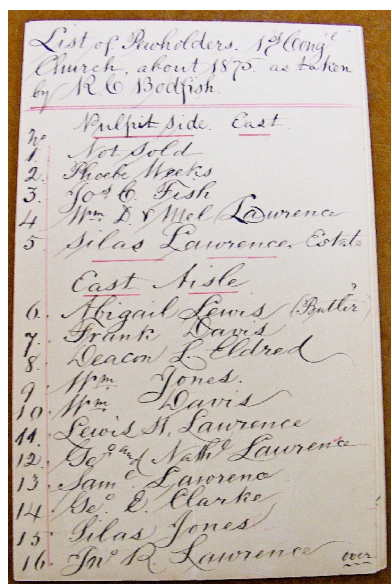 List of Pewholders. 1st Cong'l
Church, about 1875 as taken
by R. C. Bodfish.
No Pulpit Side. East.
1. Not Sold
2. Phoebe Weeks
3. Jos C. Fish
4 Wm D. & Mel Lawrence
5 Silas Lawrence. Estate
East Aisle
6. Abigail Lewis (Butler?)
7. Frank Davis
8. Deacon L. Eldred
9. Wm Jones.
10. Wm Davis
11. Lewis H. Lawrence
12. Geo and Nathl Lawrence
13 Saml Lawrenc
14 Geo E. Clarke
15 Silas Jones
16 Jno R. Lawrence over